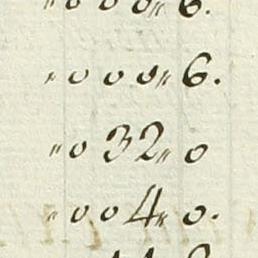 "000"6.
"000"6.
"032"0
"004"0.